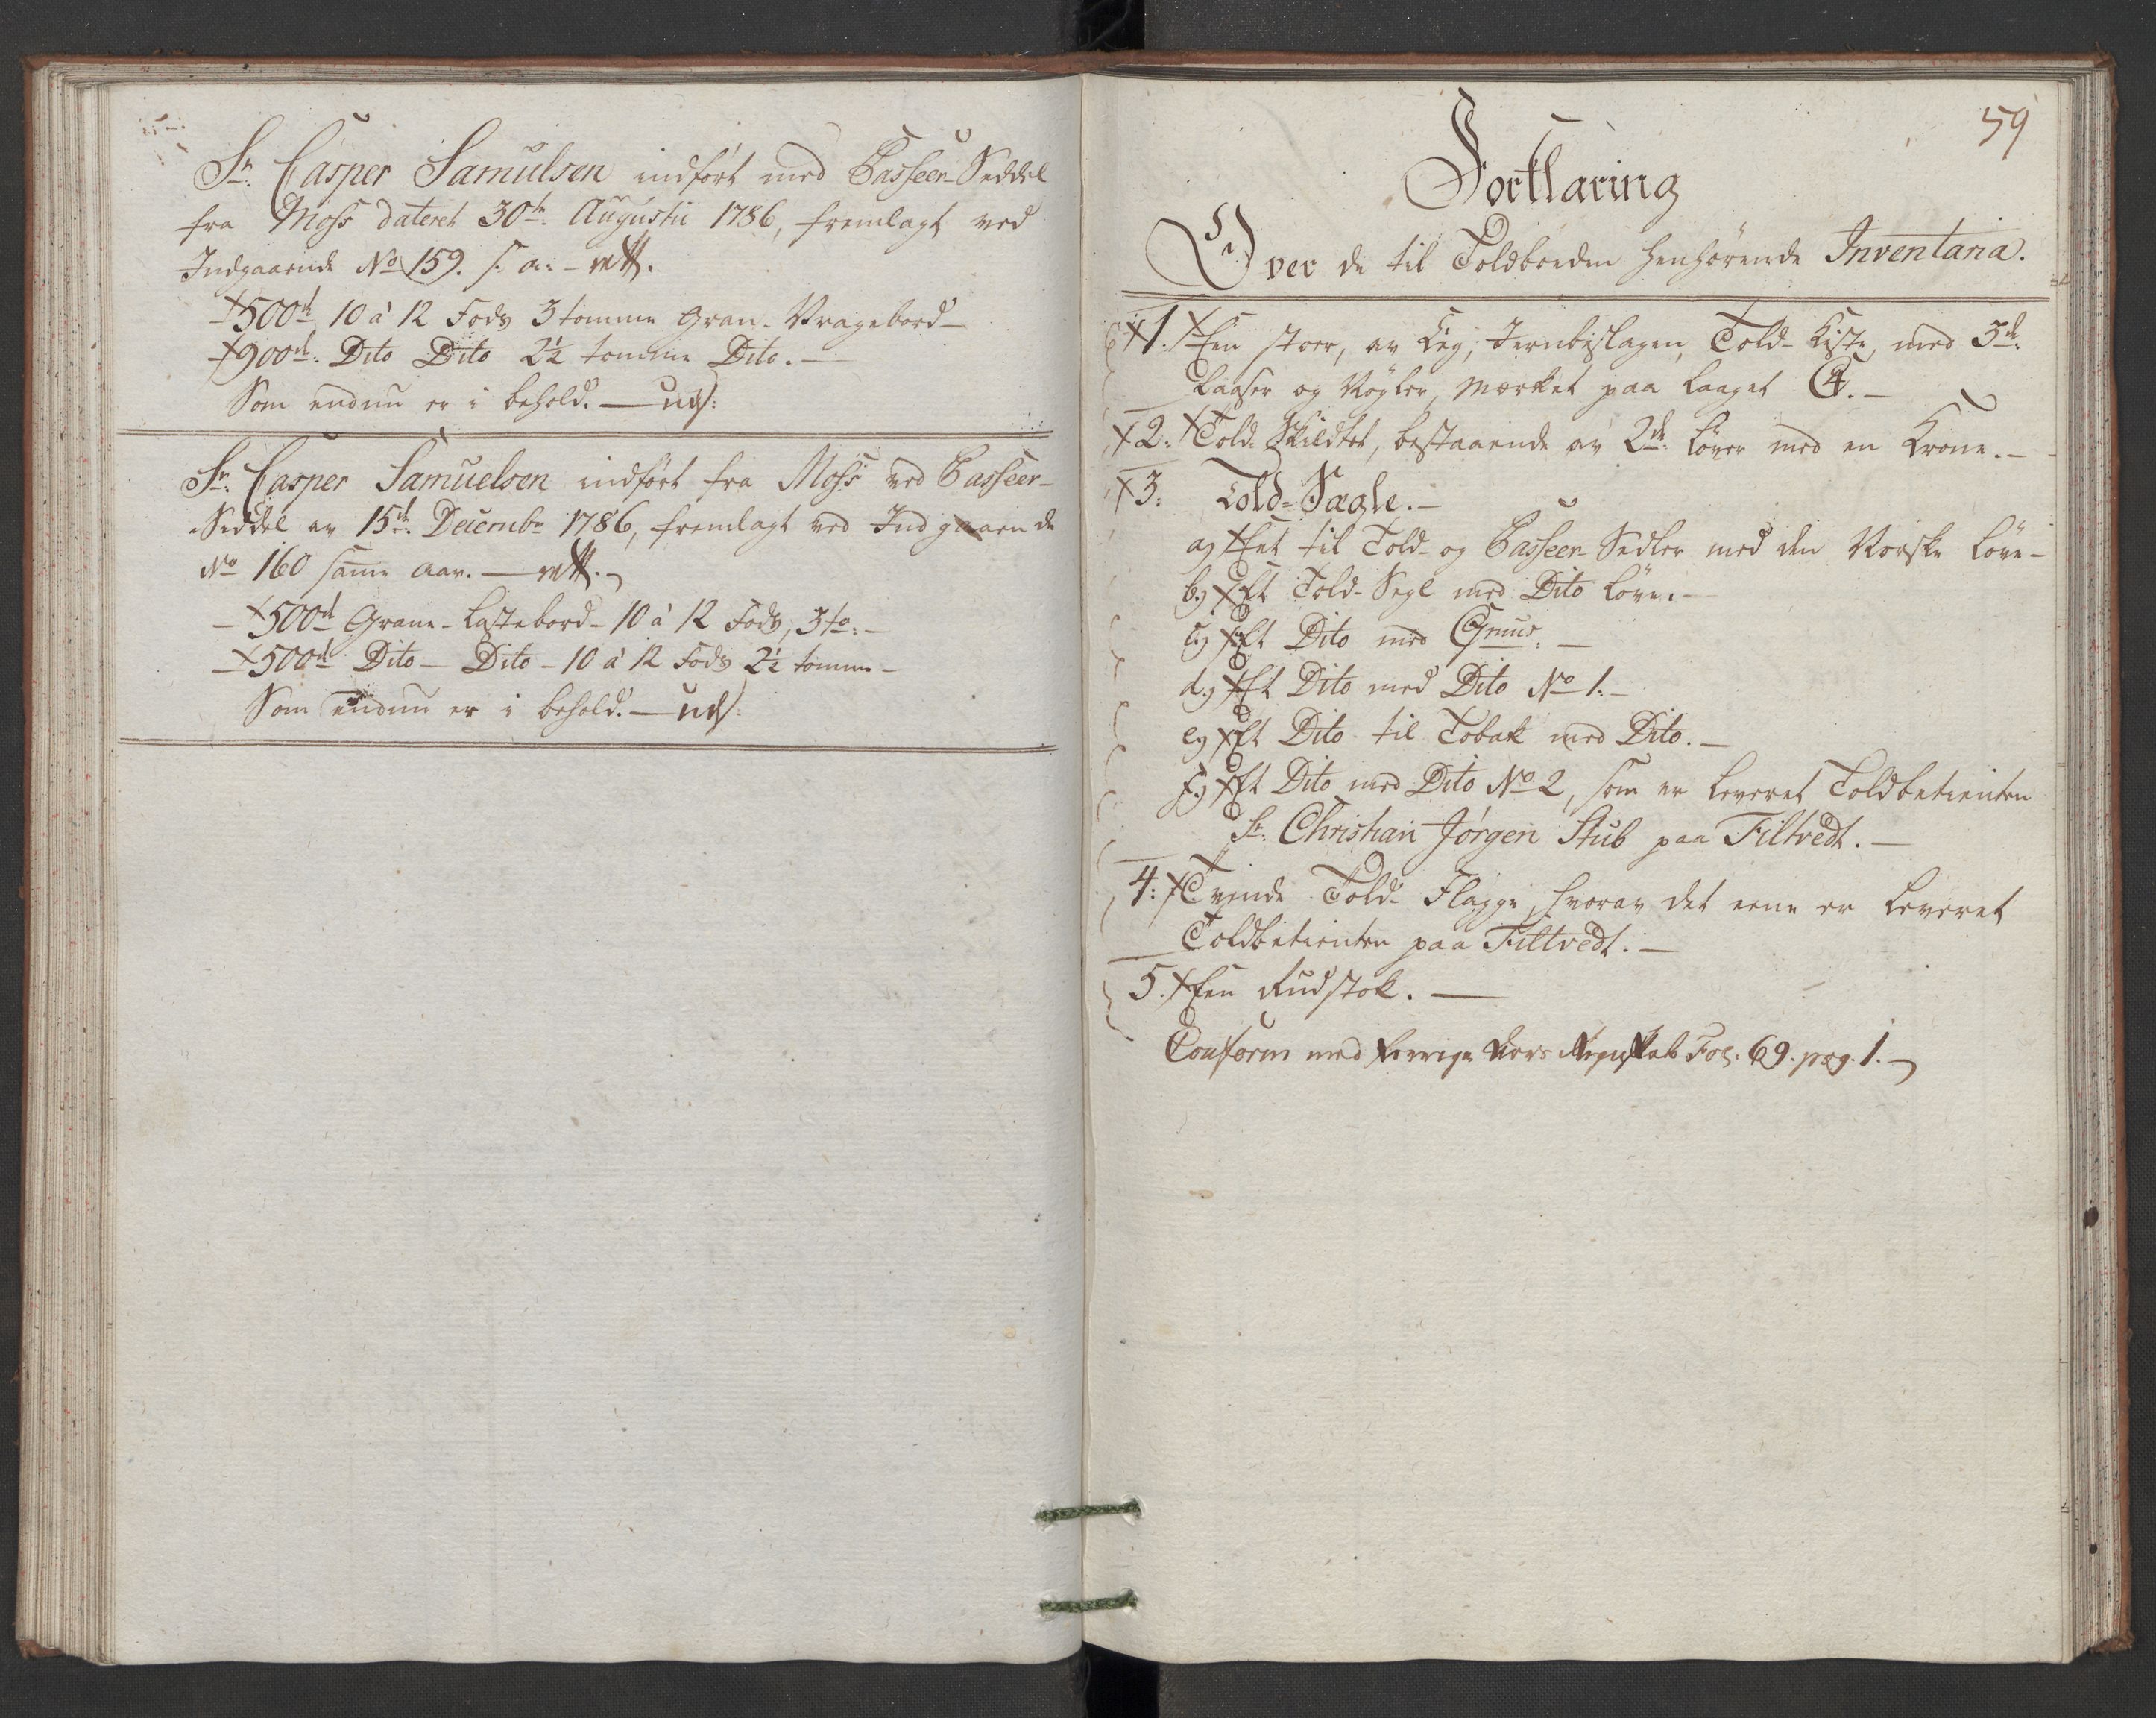 Sr: Casper Samulsen indført med Passeer-Seddel
fra Moss dateret 30te Augustii 1786, fremlagt ved
Indgaaende No 159. s: a: -
500d 10 à 12 Fods 3 tomme Gran-Vragebord-
900d: Dito Dito 2½ tomme Dito.-
Som endnu er i behold.-
Sr: Casper Samuelsen indført fra Moss ved Passeer-
Seddel av 15de Decembr 1786, fremlagt ved Indgaaende
No 160 samme aar.-
-500d Grane-Lastebord-10 à 12 Fods, 3 to:-
-500d Dito-Dito-10 à 12 Fods 2½ tomme-
Som endnu er i behold.-
59
Forklaring
Over de til Toldboeden henhørende Inventaria.
1. Een stoer, av Eeg, Jernbeslagen, Told-Kiste, med 3de
Laaser og Nøgler, mærket paa Laaget C4.-
2: Told-Skildtet, bestaaende av 2de Løver med en Krone.-
3: Told-Segle.-
a) Eet til Told- og Passeer-Sedler med den Norske Løve-
b.) Et Told-Segl med Dito Løve.-
c.) Et Dito med
d.) Et Dito med Dito No 1.-
e) Et Dito til Tobak med Dito.-
f.) Et Dito med Dito No 2, som er leveret Toldbetienten
Sr: Christian Jørgen Stub paa Filtvedt.-
4: Tvende Told-Flagge, hvorav det eene er leveret
Toldbetienten paa Filtvedt.-
5. Een Rudstok.-
Conform med forrige Aars Regnskab Fol: 69. pag. 1.